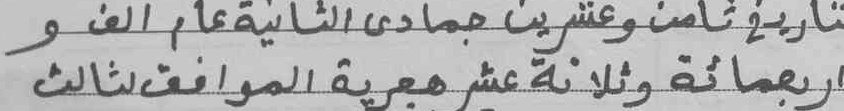 بتاريخ ثامن وعشرين جمادى الثانية عام الف و
اربعمائة وثلاثة عشر هجرية الموافق لثالث